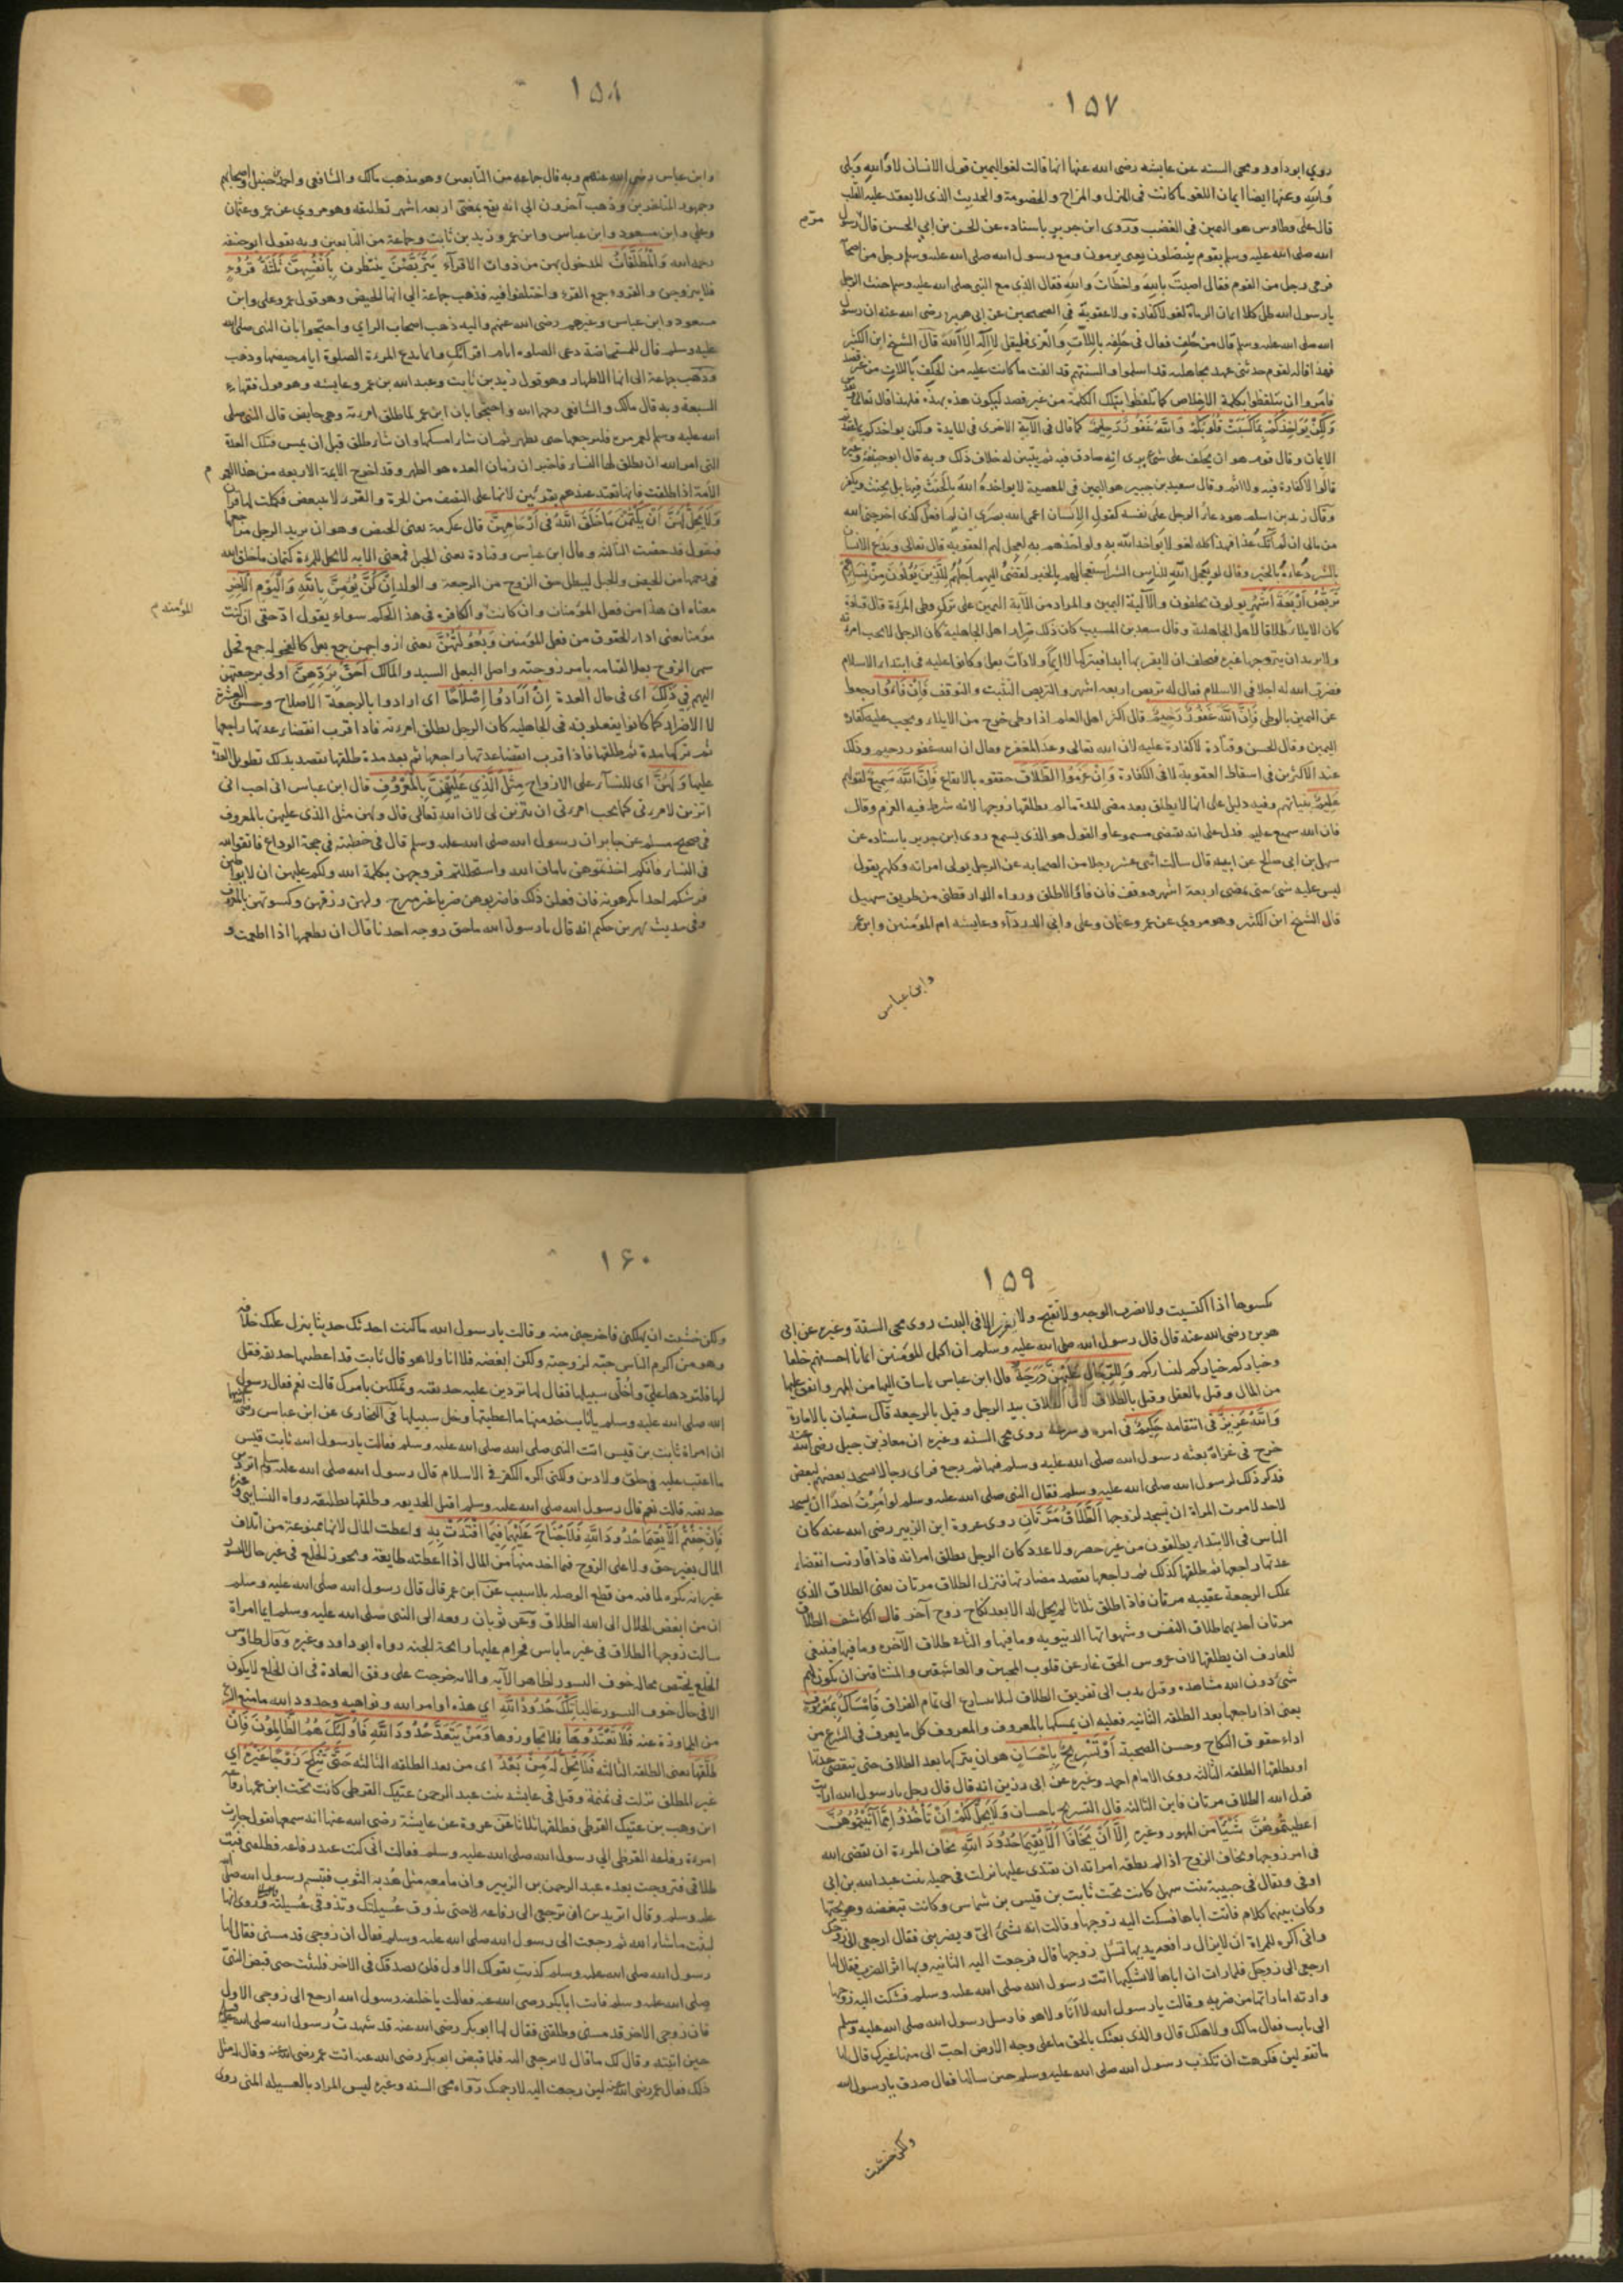 ١٥٧
روي ابوداود ومحى السنه عن عايشه رضى الله عنها انها قالت لغو اليمين قول الانسان لا والله وبلى
والله وعنها ايضا ايمان اللغو ما كانت فى الهزل و المزاح و الخصومة و الحديث الذى لا يعقد عليه القلب
قال على وطاوس هو اليمين فى الغضب وروى ابن جرير باسناده عن الحسن بن ابي الحسن قال رسول
مرّ م
الله صلى الله عليه وسلم بقوم ينتضلون يعنى يرمون ومع رسول الله صلى الله عليه وسلم رجل من اصحا
فرمى رجل من القوم فقال اصبت بالله واخطات والله فقال الذى مع النبى صلى الله عليه وسلم حنث الرجل
يا رسول الله قال كلا ايمان الرماة لغو لا كفارة ولا عقوبة فى الصحيحين عن ابى هريره رضى الله عنه ان رسول
الله صلى الله عليه وسلم قال من حلف فقال فى حلفه باللات والعزى فليقل لا اله الا الله قال الشيخ ابن الكثير
فهذا قاله لقوم حدثنى عهد بجاهلية قد اسلموا والسنتهم قد الفت ما كانت عليه من الحلف باللات من غير قصد
فامروا ان يتلفظوا بكلمة الاخلاص كما تلفظوا بتلك الكلمة من غير قصد ليكون هذه بهذه فلهذا قال تعالى
وَلَكِنْ يُؤَاخِذُكُمْ بِمَا كَسَبَتْ قُلُوبُكُمْ وَاللهُ غَفُورٌ حَلِيمٌ كما قال فى الآية الاخرى فى المايدة ولكن يواخذكم بما عقدتم
الايمان وقال قوم هو ان يحلف على شئ يرى انه صادق فيه ثم يتبين له خلاف ذلك وبه قال ابو حنيفة وغيره
قالوا لا كفارة فيه ولا اثم وقال سعيد بن جبير هو اليمين فى المعصية لا يواخذه الله بالحنث فيها بل يحنث ويكفر
وقال زيد بن اسلم هو دعاء الرجل على نفسه كقول الانسان اعمى الله بصرى ان لم افعل كذى اخرجنى الله
من مالى ان لم آتك غدا فهذا كله لغو لا يواخذ الله به ولو اخذهم به لعجل لهم العقوبه قال تعالى ويدع الانسان
بالشر دعاءه بالخير وقال لو يعجل الله للناس الشر استعجالهم بالخير لقضى اليهم اجلهم لِلَّذِينَ يُؤْلُونَ مِنْ نِسَائِهِمْ
تَرَبُّصُ أَرْبَعَةِ أَشْهُرٍ يولون يحلفون والآلية اليمين والمراد من الآية اليمين على ترك وطى المرءة قال قتادة
كان الايلاء طلاقا لاهل الجاهلية وقال سعيد بن المسيب كان ذلك ضرار اهل الجاهلية كان الرجل لا يحب امرءته
ولا يريد ان يتزوجها غيره فيحلف ان لا يقربها ابدا فيتركها لا ايما ولا ذات بعل وكانوا عليه فى ابتداء الاسلام
فضرب الله له اجلا فى الاسلام فقال له تربص اربعة اشهر والتربص التثبت والتوقف فَإِنْ فَاءُوا رجعوا
عن اليمين بالوطى فَإِنَّ اللهَ غَفُورٌ رَحِيمٌ قال اكثر اهل العلم اذا وطى خرج من الايلاء ويجب عليه كفارة
اليمين وقال الحسن وقتادة لا كفارة عليه لان الله تعالى وعد المغفرة فقال ان الله غفور رحيم وذلك
عند الاكثرين فى اسقاط العقوبة لا فى الكفارة وَإِنْ عَزَمُوا الطَّلَاقَ حققوه بالايقاع فَإِنَّ اللهَ سَمِيعٌ لقولهم
عَلِيمٌ بنياتهم وفيه دليل على انها لا يطلق بعد مضى المدة ما لم يطلقها زوجها لانه شرط فيه العزم وقال
فان الله سميع عليم فدل على انه يقتضى مسموعا والقول هو الذى يسمع روى ابن جرير باسناده عن
سهل بن ابى صالح عن ابيه قال سالت اثنى عشر رجلا من الصحابه عن الرجل يولى امراته وكلهم يقول
ليس عليه شئ حتى يمضى اربعة اشهر فيوقف فان فاء والا طلق ورواه الدار قطنى من طريق سهيل
قال الشيخ ابن الكثير وهو مروي عن عمر وعثمان وعلى وابي الدرداء وعايشه ام المؤمنين وابن عمر
وابن عباس
١٥٨
وابن عباس رضى الله عنهم وبه قال جماعه من التابعين وهو مذهب مالك والشافعى واحمد بن حنبل واصحابهم
وجمهور المتاخرين وذهب آخرون الى انه يقع بمضى اربعه اشهر تطليقه وهو مروي عن عمر وعثمان
وعلي وابن مسعود وابن عباس وابن عمر وزيد بن ثابت وجماعة من التابعين وبه يقول ابو حنيفه
رحمه الله وَالْمُطَلَّقَاتُ المدخول بهن من ذوات الاقرآء يَتَرَبَّصْنَ ينتظرن بِأَنْفُسِهِنَّ ثَلَثَةَ قُرُوءٍ
فلا يتزوجن والقروء جمع القرء واختلفوا فيه فذهب جماعة الى انها الحيض وهو قول عمر وعلى وابن
مسعود وابن عباس وغيرهم رضى الله عنهم واليه ذهب اصحاب الراي واحتجوا بان النبى صلى الله
عليه وسلم قال للمستحاضة دعى الصلوه ايام اقرائك وانما يدع المرءة الصلوة ايام حيضها وذهب
وذهب جماعة الى انها الاطهار وهو قول زيد بن ثابت وعبد الله بن عمر وعايشه وهو قول فقهاء
السبعة وبه قال مالك والشافعى رحمها الله واحتجا بان ابن عمر لما طلق امرءته وهى حايض قال النبى صلى
الله عليه وسلم لعمر مره فليرجعها حتى تطهر ثم ان شاء امسكها وان شاء طلق قبل ان يمس فتلك العدة
التى امر الله ان يطلق لها النساء فاخبر ان زمان العده هو الطهر وقد اخرج الايمة الاربعه من هذا العموم
م
الامة اذا طلقت فانها تعتد عندهم بقرئين لانها على النصف من الحرة والقرء لا يتبعض فكملت لها قرآن
وَلَا يَحِلُّ لَهُنَّ أَنْ يَكْتُمْنَ مَا خَلَقَ اللهُ فِى أَرْحَامِهِنَّ قال عكرمة يعنى الحيض وهو ان يريد الرجل مراجعها
فيقول قد حضت الثالثه وقال ابن عباس وقتادة يعنى الحبل فمعنى الايه لا يحل للمرءة كتمان ما خلق الله
فى رحمها من الحيض والحبل ليبطل حق الزوج من الرجعة والولد إِنْ كُنَّ يُؤْمِنَّ بِاللهِ وَالْيَوْمِ الْآخِرِ
معناه ان هذا من فعل المؤمنات وان كانت والكافره فى هذا الحكم سواء يقول ادّ حقى ان كنت
المؤمنه م
مؤمنا يعنى اداء الحقوق من فعل المؤمنين وَبُعُولَتُهُنَّ يعنى ازواجهن جمع بعل كالفحوله جمع فحل
سمى الزوج بعلا لقيامه بامر زوجته واصل البعل السيد والمالك أَحَقُّ بِرَدِّهِنَّ اولى برجعتهن
اليهم فِي ذَلِكَ اى فى حال العدة إِنْ أَرَادُوا إِصْلَاحًا اى ارادوا بالرجعة الاصلاح وحسن العشرة
لا الاضرار كما كانوا يفعلونه فى الجاهليه كان الرجل يطلق امرءته فاذا قرب انقضاء عدتها راجعها
ثم تركها مدة ثم طلقها فاذا قرب انقضاء عدتها راجعها ثم بعد مدة طلقها يقصد بذلك تطويل العدة
عليها وَلَهُنَّ اى للنساء على الازواج مِثْلُ الَّذِي عَلَيْهِنَّ بِالْمَعْرُوفِ قال ابن عباس انى احب انى
اتزين لامرءتى كما يحب امرءتى ان تتزين لى لان الله تعالى قال ولهن مثل الذى عليهن بالمعروف
فى صحيح مسلم عن جابر ان رسول الله صلى الله عليه وسلم قال فى خطبته فى حجة الوداع فاتقوا الله
فى النساء فانكم اخذتموهن بامان الله واستحللتم فروجهن بكلمة الله ولكم عليهن ان لا يوطين
فرشكم احدا تكرهونه فان فعلن ذلك فاضربوهن ضربا غير مبرح ولهن رزقهن وكسوتهن بالمعروف
وفى حديث بهز بن حكيم انه قال يا رسول الله ما حق زوجه احدنا قال ان تطعمها اذا اطعمت و
١٥٩
تكسوها اذا اكتسيت ولا تضرب الوجه ولا تقبح ولا تهجر الا فى البيت روى محى السنة وغيره عن ابى
هريره رضى الله عنه قال قال رسول الله صلى الله عليه وسلم ان اكمل المؤمنين ايمانا احسنهم خلقا
وخياركم خياركم لنسائكم وَلِلرِّجَالِ عَلَيْهِنَّ دَرَجَةٌ قال ابن عباس بما ساق اليها من المهر وانفق عليها
من المال وقيل بالعقل وقيل بالطلاق لان الطلاق بيد الرجل وقيل بالرجعه قال سفيان بالامارة
وَاللهُ عَزِيزٌ فى انتقامه حَكِيمٌ فى امره وشرعه روى محى السنه وغيره ان معاذ بن جبل رضى الله عنه
خرج فى غزاة بعثه رسول الله صلى الله عليه وسلم فيها ثم رجع فراى رجالا يسجد بعضهم لبعض
فذكر ذلك لرسول الله صلى الله عليه وسلم فقال النبى صلى الله عليه وسلم لو امرت احدا ان يسجد
لاحد لامرت المراة ان يسجد لزوجها الطَّلَاقُ مَرَّتَانِ روى عروة ابن الزبير رضى الله عنه كان
الناس فى الابتداء يطلقون من غير حصر ولا عدد كان الرجل يطلق امراته فاذا قاربت انقضاء
عدتها راجعها ثم طلقها كذلك ثم راجعها يقصد مضارتها فنزل الطلاق مرتان يعنى الطلاق الذى
يملك الرجعة عقيبه مرتان فاذا طلق ثلاثا لم يحل له الا بعد نكاح زوج آخر قال الكاشف الطلاق
مرتان احديهما طلاق النفس وشهواتها الدنيويه وما فيها والثانى طلاق الآخره وما فيها فينبغى
للعارف ان يطلقها لان عروس الحق تغار عن قلوب المحبين والعاشقين والمشتاقين ان يكون لهم
شئ دون الله مشاهده وقيل ندب الى تفريق الطلاق ليلا يسارع الى تمام الفراق فَإِمْسَاكٌ بِمَعْرُوفٍ
يعنى اذا راجعها بعد الطلقه الثانيه فعليه ان يمسكها بالمعروف والمعروف كل ما يعرف فى الشرع من
اداء حقوق النكاح وحسن الصحبة أَوْ تَسْرِيحٌ بِإِحْسَانٍ هو ان يتركها بعد الطلاق حتى ينقضى عدتها
او يطلقها الطلقه الثالثه روى الامام احمد وغيره عن ابى رزين انه قال قال رجل يا رسول الله ارايت
قول الله الطلاق مرتان فاين الثالثه قال التسريح باحسان وَلَا يَحِلُّ لَكُمْ أَنْ تَأْخُذُوا مِمَّا آتَيْتُمُوهُنَّ
اعطيتموهن شَيْئًا من المهور وغيره إِلَّا أَنْ يَخَافَا أَلَّا يُقِيمَا حُدُودَ اللهِ يخاف المرءة ان تقضى الله
فى امر زوجها ويخاف الزوج اذا لم يطعه امراته ان يعتدى عليها نزلت فى جميله بنت عبد الله بن ابى
اوفى ويقال فى حبيبة بنت سهل كانت تحت ثابت بن قيس بن شماس وكانت تبغضه وهو يحبها
وكان بينهما كلام فاتت اباها فشكت اليه زوجها وقالت انه يسئ الىّ ويضربنى فقال ارجعى الى زوجك
وانى اكره للمراة ان لا يزال رافعه يديها تشكى زوجها قال فرجعت اليه الثانيه وبها اثر الضرب فقال لها
ارجعى الى زوجك فلما رات ان اباها لا يشكيها اتت رسول الله صلى الله عليه وسلم فشكت اليه زوجها
وارته اماراتها من ضربه وقالت يا رسول الله لا انا ولا هو فارسل رسول الله صلى الله عليه وسلم
الى ثابت فقال مالك ولاهلك قال والذى بعثك بالحق ما على وجه الارض احب الى منها غيرك قال لها
ما تقولين فكرهت ان تكذب رسول الله صلى الله عليه وسلم حين سالها فقال صدق يا رسول الله
ولكن خشيت
١٦٠
ولكن خشيت ان يهلكنى فاخرجنى منه وقالت يا رسول الله ما كنت احدثك حديثا ينزل عليك خلافه
وهو من اكرم الناس حبّه لزوجته ولكن ابغضه فلا انا ولا هو قال ثابت قد اعطيتها حديقه فقل
لها فلتردها علىّ واخلى سبيلها فقال لها تردين عليه حديقته وتملكين بامرك قالت نعم فقال رسول
الله صلى الله عليه وسلم يا ثابت خذ منها ما اعطيتها وخل سبيلها فى البخارى عن ابن عباس رضى
ان امراة ثابت بن قيس اتت النبى صلى الله عليه وسلم فقالت يا رسول الله ثابت قيس
ما اعتب عليه فى خلق ولا دين ولكنى اكره الكفر فى الاسلام قال رسول الله صلى الله عليه وسلم اتردين
حديقته قالت نعم قال رسول الله صلى الله عليه وسلم اقبل الحديقه وطلقها تطليقه رواه النسائى وغيره
فَإِنْ خِفْتُمْ أَلَّا يُقِيمَا حُدُودَ اللهِ فَلَا جُنَاحَ عَلَيْهِمَا فِيمَا افْتَدَتْ بِهِ واعطت المال لانها ممنوعة من اتلاف
المال بغير حق ولا على الزوج فيما اخذ منها من المال اذا اعطته طايعة ويجوز الخلع فى غير حال النشوز
غير انه يكره لما فيه من قطع الوصله بلا سبب عن ابن عمر قال قال رسول الله صلى الله عليه وسلم
ان من ابغض الحلال الى الله الطلاق وعن ثوبان رفعه الى النبى صلى الله عليه وسلم ايما امراة
سالت زوجها الطلاق فى غير ما باس فحرام عليها رائحة الجنه رواه ابو داود وغيره وقال طاوس
الخلع يختص بحاله خوف النشوز لظاهر الآيه والايه خرجت على وفق العادة فى ان الخلع لا يكون
الا فى حال خوف النشوز غالبا تِلْكَ حُدُودُ اللهِ اي هذه اوامر الله ونواهيه وحدود الله ما منع الشرع
من المجاوزة عنه فَلَا تَعْتَدُوهَا فلا تجاوزوها وَمَنْ يَتَعَدَّ حُدُودَ اللهِ فَأُولَئِكَ هُمُ الظَّالِمُونَ فَإِنْ
طَلَّقَهَا يعنى الطلقه الثالثه فَلَا تَحِلُّ لَهُ مِنْ بَعْدُ اى من بعد الطلقه الثالثه حَتَّى تَنْكِحَ زَوْجًا غَيْرَهُ اى
غير المطلق نزلت فى تميمة وقيل فى عايشه بنت عبد الرحمن عتيك القرظى كانت تحت ابن عمها رفاعه
ابن وهب بن عتيك القرظى فطلقها ثلاثا عن عروة عن عايشة رضى الله عنها انه سمعها تقول جاءت
امرءة رفاعه القرظى الي رسول الله صلى الله عليه وسلم فقالت انى كنت عند رفاعه فطلقنى فبت
طلاقى فتزوجت بعده عبد الرحمن بن الزبير وان ما معه مثل هدبه الثوب فتبسم رسول الله صلى
عليه وسلم وقال اتريدين ان ترجعى الى رفاعه لا حتى يذوق عُسيلتك وتذوقى عُسيلته وروى انها
لبثت ما شاء الله ثم رجعت الى رسول الله صلى الله عليه وسلم فقال ان زوجى قد مسنى فقال لها
رسول الله صلى الله عليه وسلم كذبت بقولك الاول فلن نصدقك فى الآخر فلبثت حتى قبض النبىّ
صلى الله عليه وسلم فاتت ابابكر رضى الله عنه فقالت يا خليفه رسول الله ارجع الى زوجى الاول
فان زوجى الاخر قد مسنى وطلقنى فقال لها ابوبكر رضى الله عنه قد شهدتُ رسول الله صلى الله عليه وسلم
حين اتيته وقال لك ما قال لا ترجعى اليه فلما قبض ابوبكر رضى الله عنه اتت عمر رضى الله عنه وقال له مثل
ذلك فقال عمر رضى الله عنه لين رجعت اليه لارجمنك رواه محى السنه وغيره ليس المراد بالعسيله المنى روى